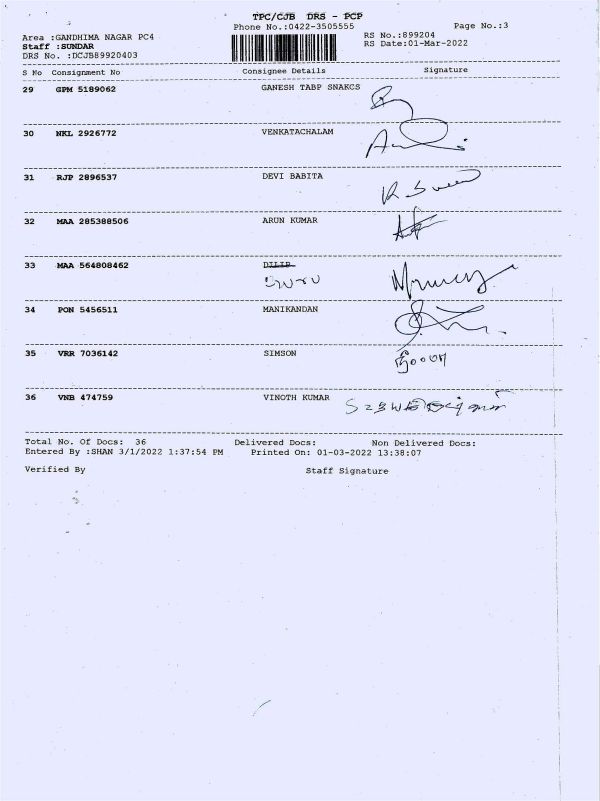 TPC/CJB DRS - PCP
Phone No.:0422-3505555 Page No.:3
Area :GANDHIMA NAGAR PC4 RS No.:899204
Staff :SUNDAR RS Date:01-Mar-2022
DRS No. :DCJB89920403
S No Consignment No Consignee Details Signature
29 GPM 5189062 GANESH TABP SNAKCS
30 NKL 2926772 VENKATACHALAM
31 RJP 2896537 DEVI BABITA
32 MAA 285388506 ARUN KUMAR
33 MAA 564808462 DILIP
34 PON 5456511 MANIKANDAN
35 VRR 7036142 SIMSON
36 VNB 474759 VINOTH KUMAR
Total No. Of Docs: 36 Delivered Docs: Non Delivered Docs:
Entered By :SHAN 3/1/2022 1:37:54 PM Printed On: 01-03-2022 13:38:07
Verified By Staff Signature